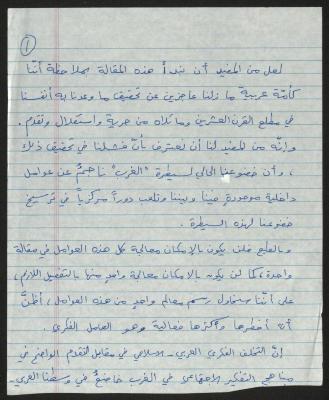 ١
لعل من المفيد أن نبدأ هذه المقالة بملاحظة أننا
كأمّة عربية ما زلنا عاجزين عن تحقيق ما وعدنا به أنفسنا
في مطلع القرن العشرين وما تلاه من حرية واستقلال وتقدم.
وإنّه من المفيد لنا أن نعترف بأنّ فشلنا في تحقيق ذلك
، وأن خضوعنا الحالي لسيطرة "الغرب" ناجمٌ عن عوامل
داخلية موجودة فينا وبيننا وتلعب دوراً مركزياً في ترسيخ
خضوعنا لهذه السيطرة.
وبالطبع فلن يكون بالإمكان معالجة كل هذه العوامل في مقالة
واحدة، كما لن يكون بالإمكان معالجة واحدٍ منها بالتفصيل اللازم،
على أننّا سنحاول رسم معالم واحدٍ من هذه العوامل، أظنّ
أنه أخطرها وأكثرها فعالية وهو العامل الفكري.
إنّ التخلف الفكري العربي - الاسلامي في مقابل التقدم الواضح في
مناهج التفكير الاجتماعي في الغرب خاضعٌ في وسطنا العربي -